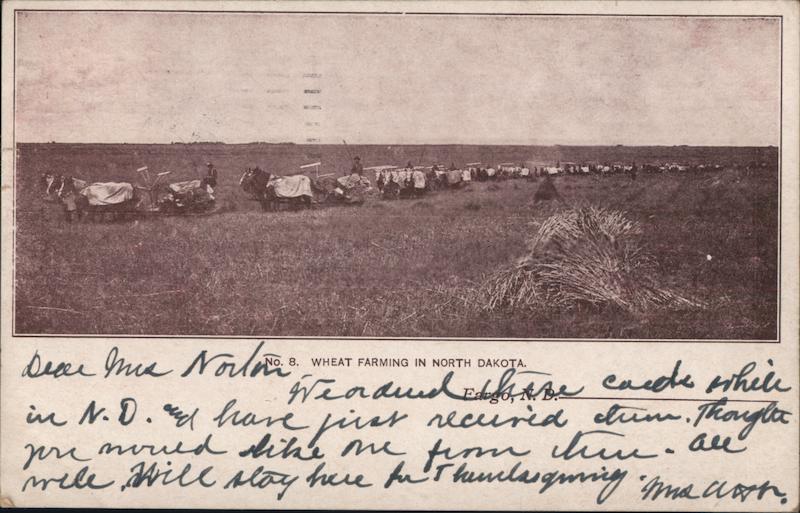 No. 8. WHEAT FARMING IN NORTH DAKOTA.
Fargo, N. D.
Dear Mrs Norton
We ordered these cards while
in N. D. and have just received them. Thought
you would like one from them - All
well. Will stay here for Thanksgiving.
Mrs